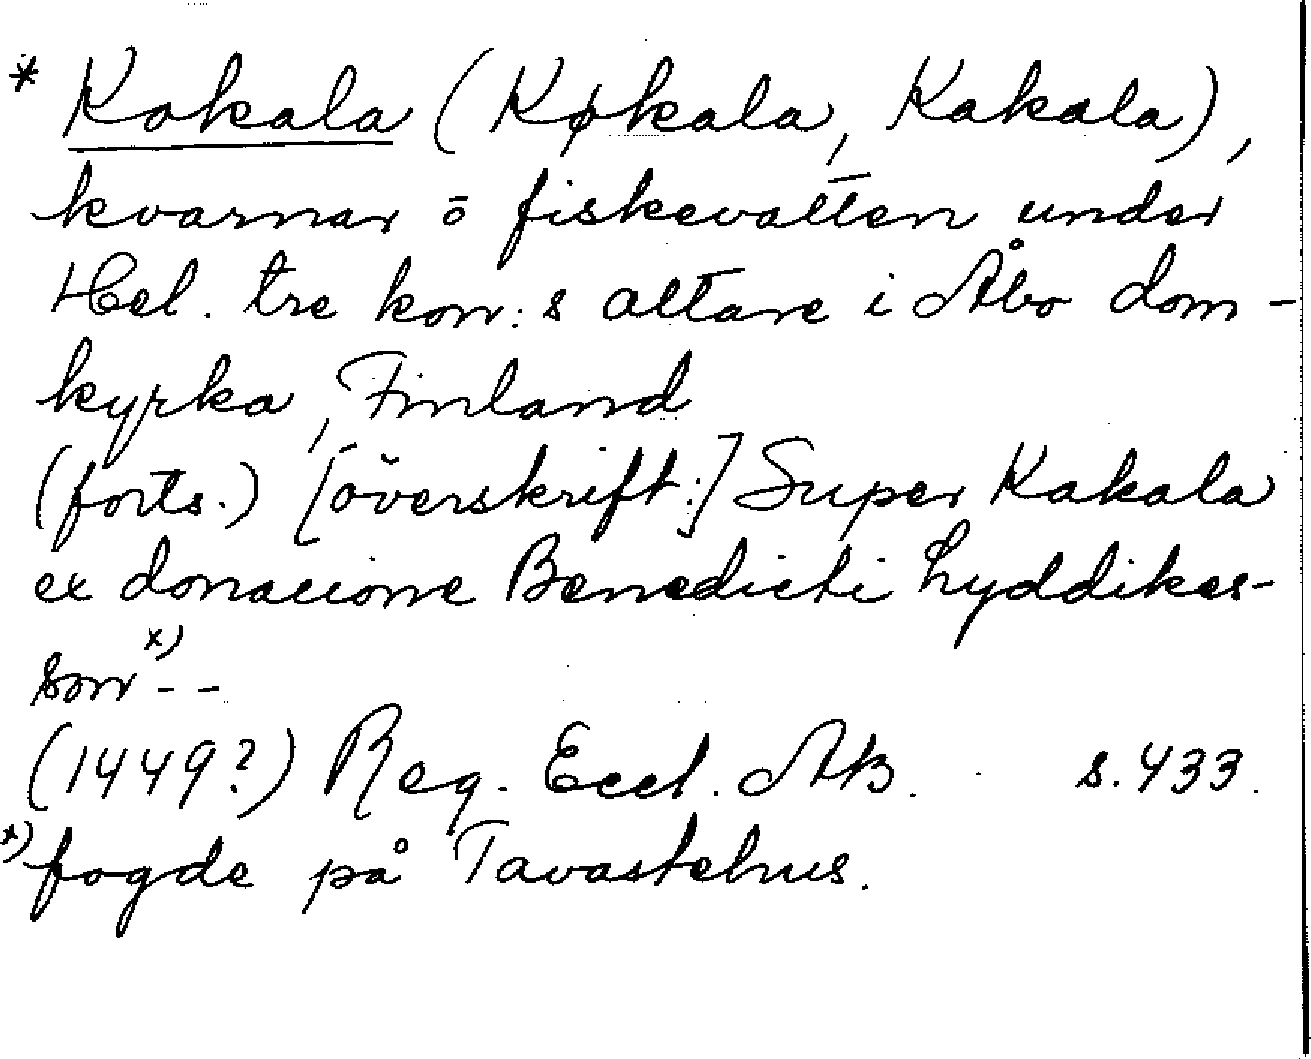 * Kokala (Køkala, Kakala),
kvarnar o fiskevatten under
Hel. tre kon:s altare i Åbo dom-
kyrka, Finland
(forts.) [överskrift:] Super Kakala
ex donacione Benedicti Lyddikes-
son x) - -
(1449?) Reg. Eccl. Ab. s. 433.
x) fogde på Tavastehus.